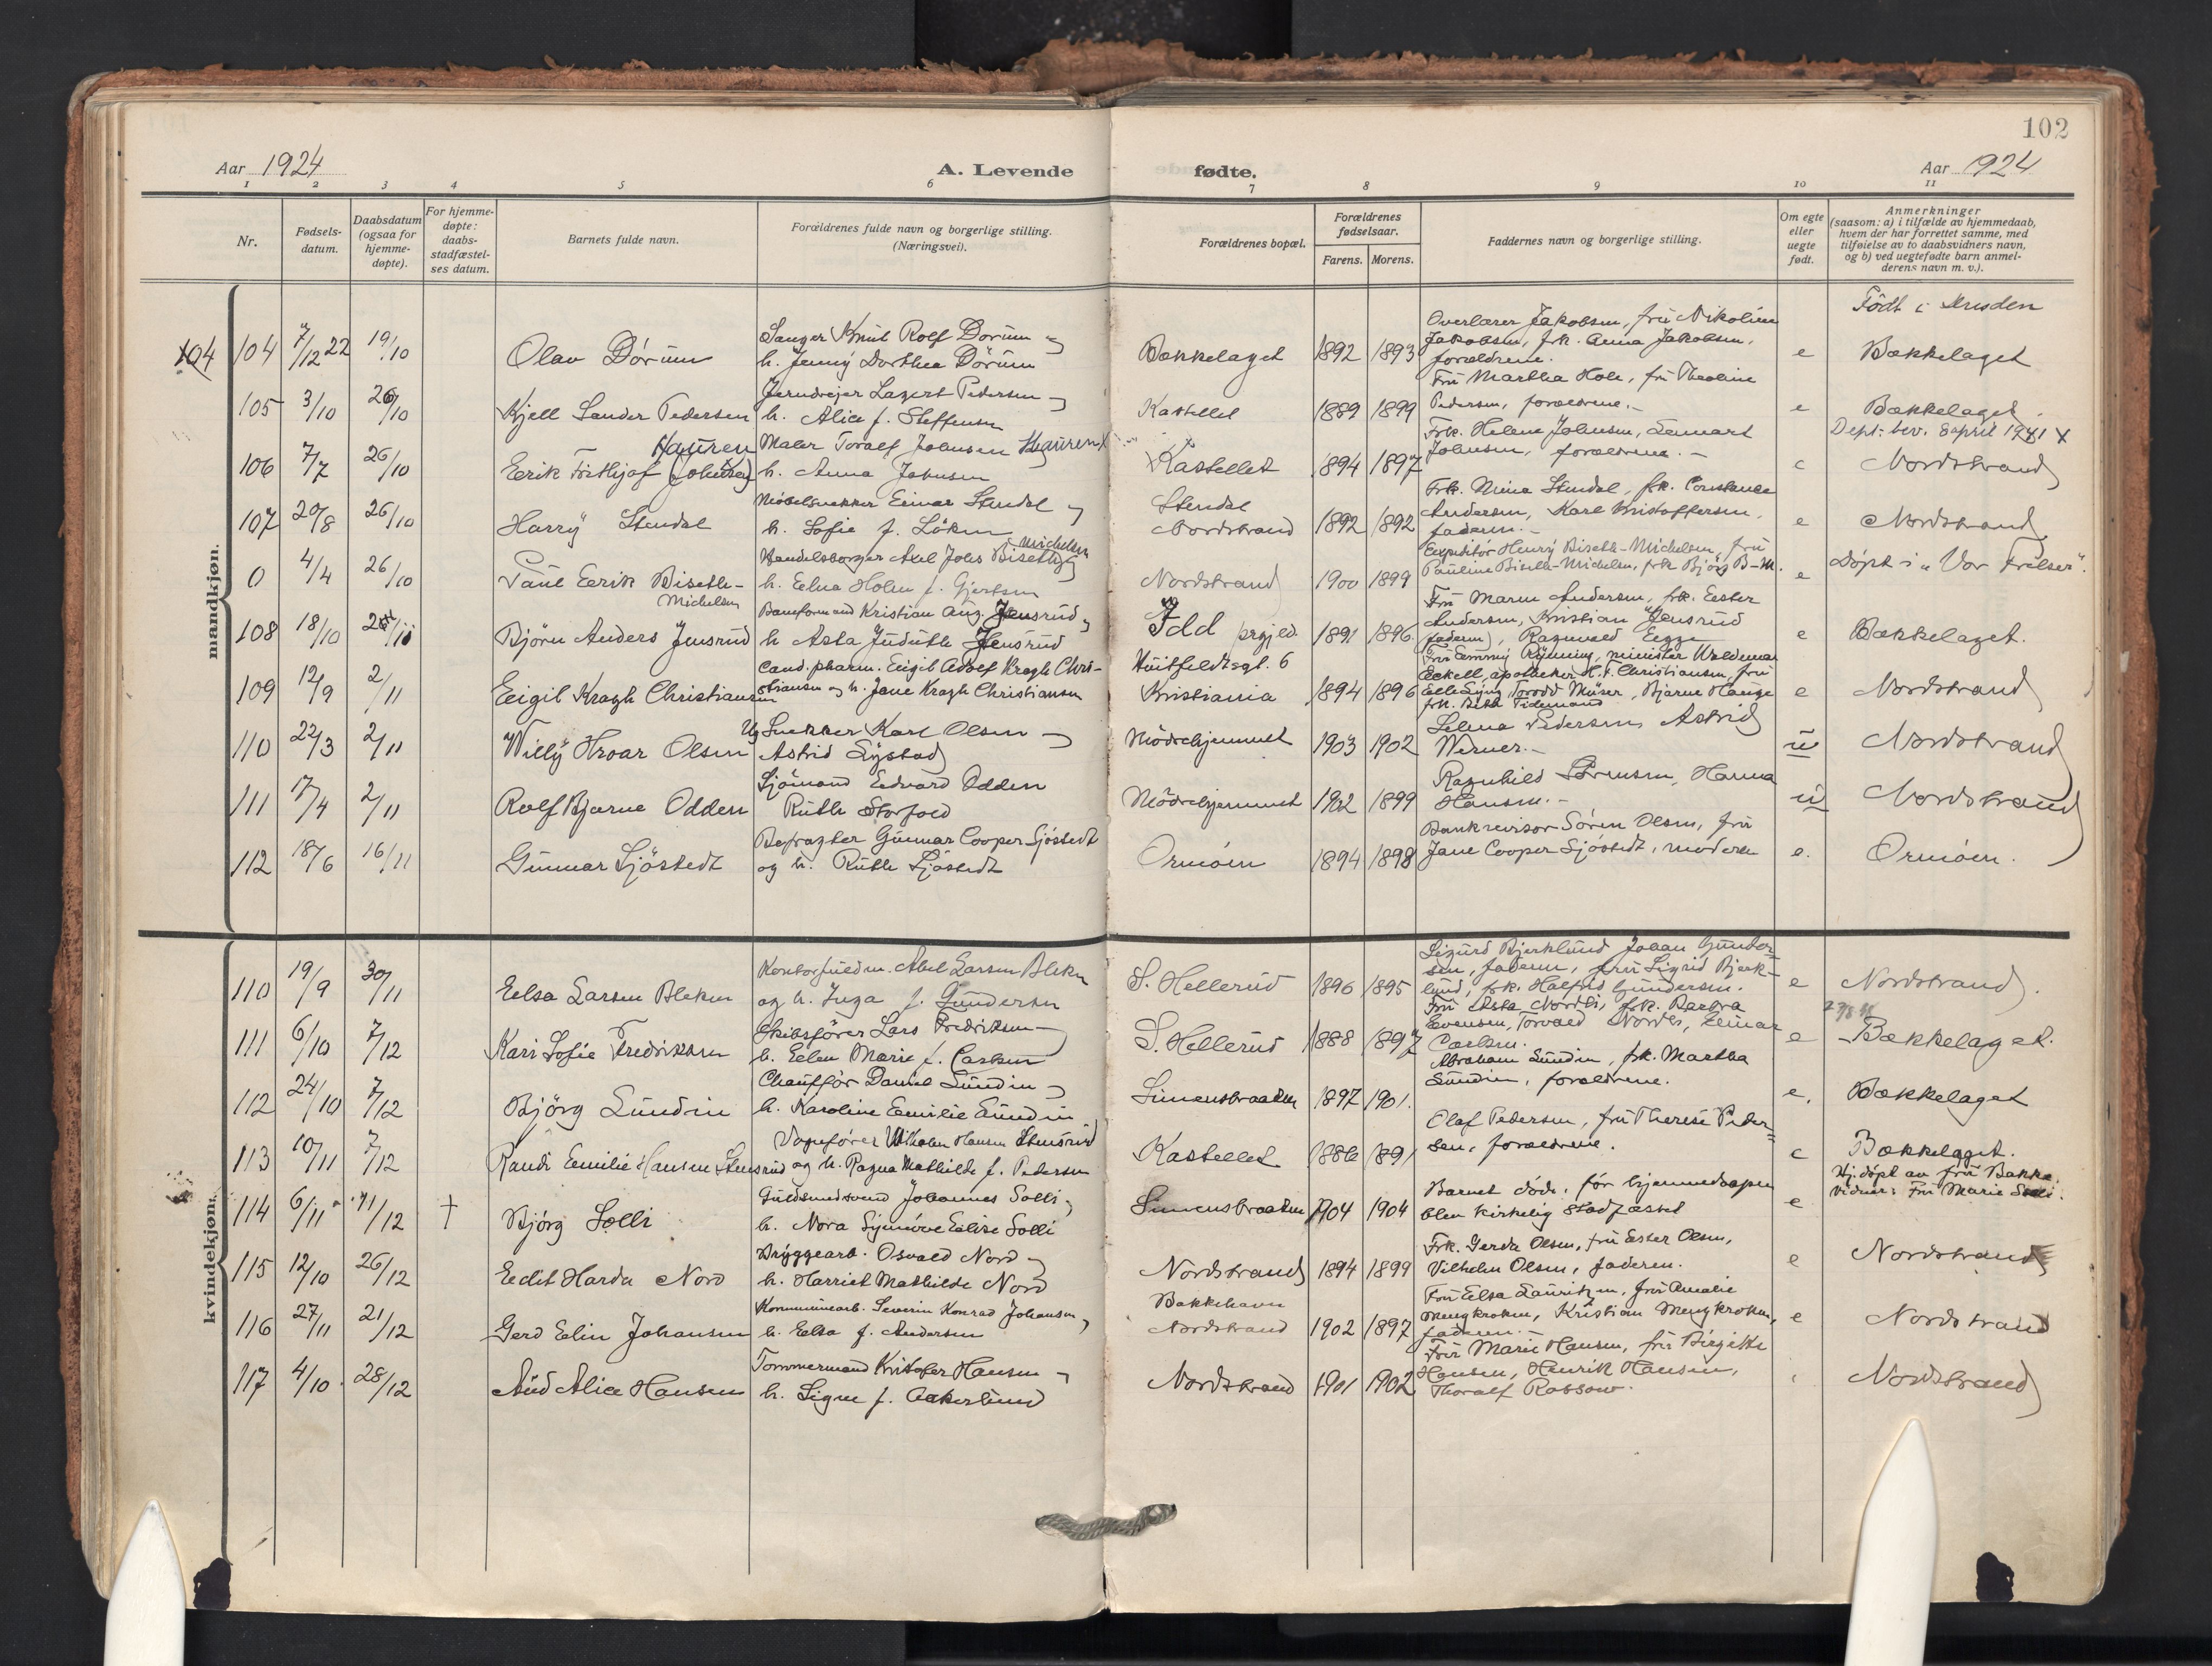 102
Aar 1924
A. Levende
fødte.
Aar 1924
1 2 3 4 5 6 7 8 9 10 11
Nr.
Fødsels-
datum.
Daabsdatum
(ogsaa for
hjemme-
døpte).
For hjemme-
døpte:
daabs-
stadfæstel-
ses datum.
Barnets fulde navn.
Forældrenes fulde navn og borgerlige stilling.
(Næringsvei).
Forældrenes bopæl.
Forældrenes
fødselsaar.
Farens. Morens.
Faddernes navn og borgerlige stilling.
Om egte
eller
uegte
født.
Anmerkninger
(saasom: a) i tilfælde av hjemmedaab,
hvem der har forrettet samme, med
tilføielse av to daabsvidners navn,
og b) ved uegtefødte barn anmel-
derens navn m. v.).
mandkjøn.
104 104 7/12 22 19/10 Olav Dørum
Sanger Knut Rolf Dørum og
h. Jenny Dorthea Dørum
Bækkelaget 1892 1893
Overlærer Jakobsen, fru Nikoline
Jakobsen, frk. Anna Jakobsen,
forældrene.
e
Født i
Bækkelaget
105 3/10 26/10 Kjell Sander Pedersen
h. Alice f. Steffensen
Kastellet 1889 1899
Fru Martha Hole, fru Theoline
Pedersen, forældrene.
e Bækkelaget.
106 7/7 26/10 Hauren
Eerik Frithjof (Johnsen)
Maler Toralf Johnsen Hauren X
h. Anna Johnsen
Kastellet 1894 1897
Frk. Helene Johnsen, Lennart
Johnsen, forældrene.
e
Dept. bev. 8 april 1941 X
Nordstrand
107 20/8 26/10 Harry Stendal
Møbelsnekker Einar Stendal og
h. Sofie f. Løken
Stendal
Nordstrand 1892 1892
Frk. Mina Stendal, frk. Constance
Andersen, Karl Kristoffersen,
faderen.
e Nordstrand
0 4/4 26/10 Paul Eerik Biseth-
Michelsen
Handelsborger Axel Johs Biseth-Michelsen
h. Edna Holm f. Gjertsen
Nordstrand 1900 1899
Expeditør Henry Biseth-Michelsen, fru
Pauline Biseth-Michelsen, frk Bjørg B-M.
e Døpt i "Vor Frelser".
108 18/10 Bjørn Anders Jensrud
Baneformand Kristian Aug. Jensrud og
h. Asta Judithe Jensrud
Idd prgjeld. 1891 1896
Fru Maren Andersen, frk. Eester
Andersen, Kristian Jensrud
(faderen), Ragnvald Eegge
e Bækkelaget.
109 12/9 2/11 Eeigil Kragh Christiansen
Cand. pharm. Eeigil Adolf Kragh Chri-
stiansen og h. Jane Kragh Christiansen
Huitfeldtsgt. 6
Kristiania 1894 1896
Fru Eemmy Rynning, minister Waldemar
Eckell, apotheker H. F. Christiansen, fru
Torodd Müser, Bjarne Hauge
frk. Beth Tidemand
e Nordstrand
110 22/3 2/11 Willy Hroar Olsen
Ug Snekker Karl Olsen
Astrid Lystad
Mødrehjemmet 1903 1902
Selma Pedersen, Astrid
Werner.
u Nordstrand
111 17/4 2/11 Rolf Bjarne Odden
Sjømand Eedvard Odden
Ruth Storfold
Mødrehjemmet 1902 1899
Ragnhild Sørensen, Hanna
Hansen.
u Nordstrand
112 18/6 16/11 Gunnar Sjöstedt
Befragter Gunnar Cooper Sjöstedt
og h. Ruth Sjöstedt
Ormøen 1894 1898
Bankrevisor Søren Olsen, fru
Jane Cooper Sjöstedt, moderen
e. Ormøen.
kvindekjøn.
110 19/9 30/11 Eelsa Larsen Bleken
Kontorfuldm. Abel Larsen Bleken
og h. Inga f. Gundersen
S. Hellerud 1896 1895
Sigurd Bjerklund, Johan Gunder-
sen, faderen, fru Sigrid Bjerk-
lund, frk. Halfrid Gundersen.
e Nordstrand.
111 6/10 7/12 Kari Sofie Fredriksen
Skibsfører Lars Fredriksen
h. Eellen Marie f. Carlsen
S. Hellerud 1888 1897
Fru Asta Nordli, frk. Barbra
Eevensen, Torvald Nordli, Eeinar
Carlsen.
e Bækkelaget.
112 24/10 7/12 Bjørg Sundin
Chauffør Daniel Sundin
h. Karoline Eemilie Sundin
Simensbraaten 1897 1901.
Abraham Sundin, frk. Martha
Sundin, forældrene.
e. Bækkelaget
113 10/11 7/12 Randi Eemilie Hansen Stensrud
Vognfører Wilhelm Hansen Stensrud
og h. Ragna Mathilde f. Pedersen
Kastellet 1886 1891
Olaf Pedersen, fru Therese Peder-
sen, forældrene.
e Bækkelaget.
114 6/11 11/12 † Bjørg Solli
Guldsmedsvend Johannes Solli
h. Nora Synnøve Eelise Solli
Simensbraaten 1904 1904
Barnet døde, før hjemmedaapen
blev kirkelig stadfæstet
e
Hj.døpt av fru Bakke.
Vidner: Fru Marie Solli.
115 12/10 26/12 Eedit Harda Nord
Bryggearb. Osvald Nord
h. Harriet Mathilde Nord
Nordstrand 1894 1899
Frk. Gerda Olsen, fru Ester Olsen,
Vilhelm Olsen, faderen.
e Nordstrand
116 27/11 21/12 Gerd Eelin Johansen
Kommunearb. Severin Konrad Johansen,
h. Eelsa f. Andersen
Bakkehavn
Nordstrand 1902 1897
Fru Elsa Lauritzen, fru Amalie
Mengkroken, Kristian Mengkroken,
faderen.
e Nordstrand
117 4/10 28/12 Aud Alice Hansen
Tømmermand Kristofer Hansen
h. Signe f. Aakerlund
Nordstrand 1901 1902
Fru Marie Hansen, fru Birgitte
Hansen, Henrik Hansen,
Thoralf Rossow.
Nordstrand